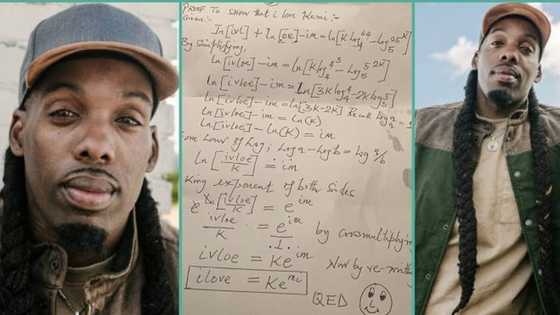 PROOF To show that i love Kemi:-
Given:-
ln[ivl] + ln[oe] - im = ln[K log₄64 - log₅25ᴷ]
By Simplifying,
ln[ivloe] - im = ln[K log₄4³ - log₅5²ᴷ]
ln[ivloe] - im = ln[3K log₄4 - 2K log₅5]
ln[ivloe] - im = ln[3K - 2K] Recall
ln[ivloe] - im = ln(K)
ln[ivloe] - ln(K) = im
From Law of Log, Log a - Log b = log a/b
ln[ivloe/K] = im
king exponent of both sides
e^ln[ivloe/K] = e^im
ivloe/K = e^im/1 by crossmultiplyin
ivloe = Ke^im Now by re-
ilove = Ke^mi
QED